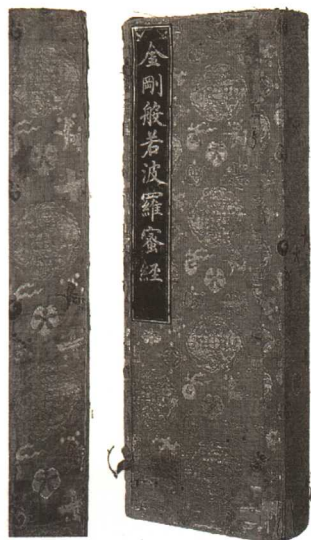 金剛般若波羅蜜経